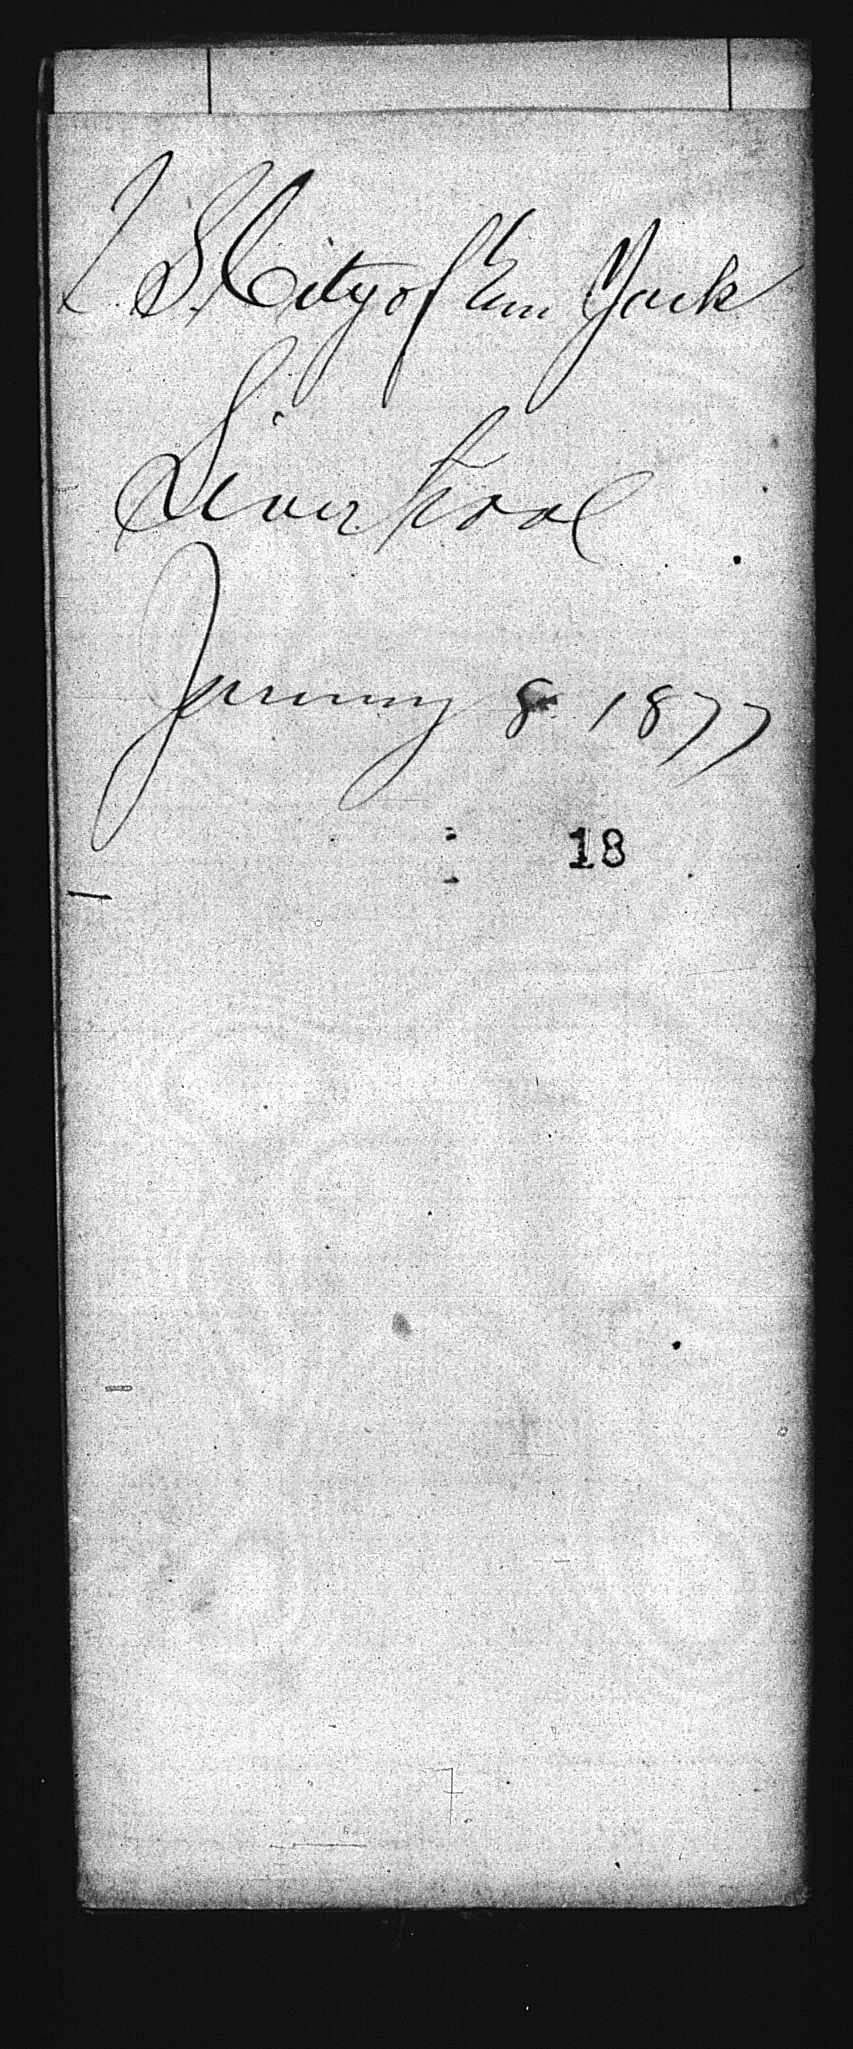 S. S. City of New York
Liverpool
January 8 1877
18